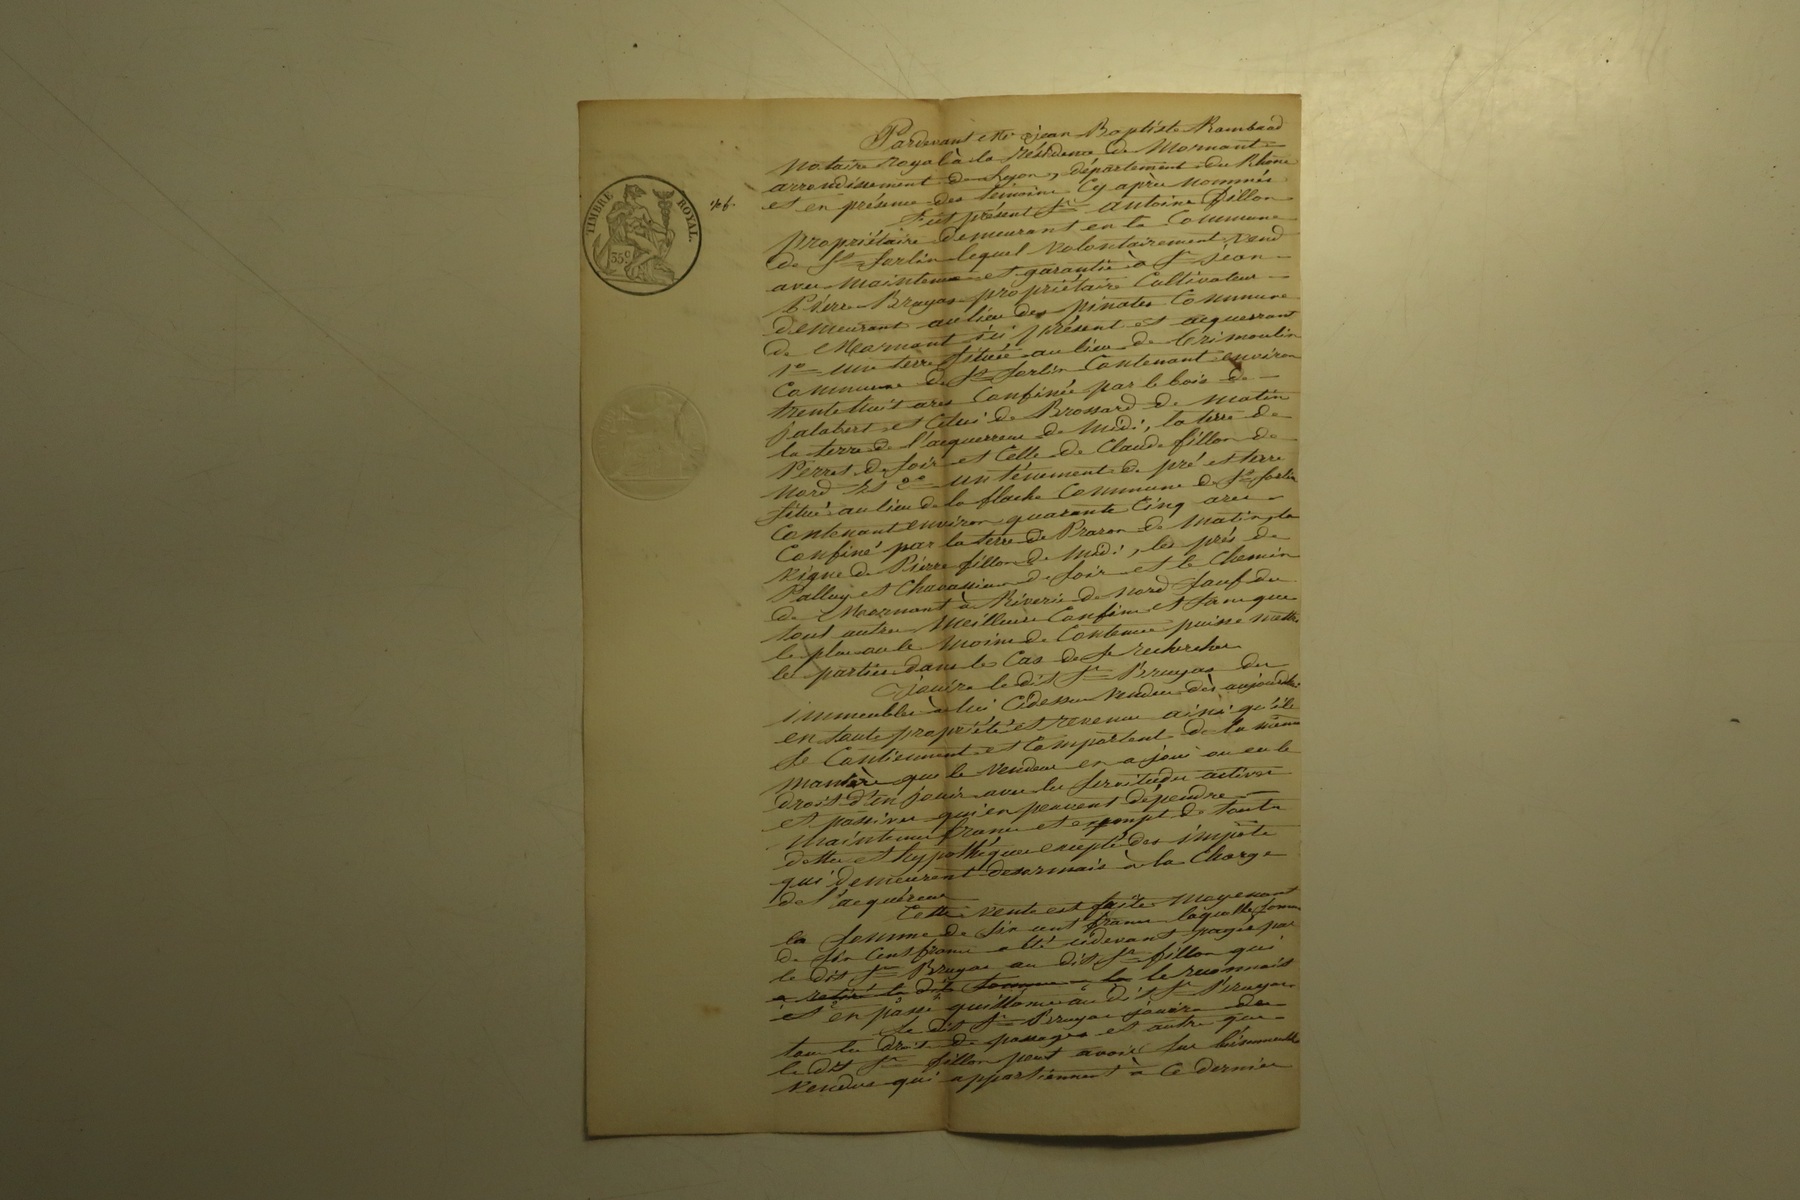 TIMBRE ROYAL.
35c
Pardevant Me Jean Baptiste Rambaud
Notaire royal à la résidence de Mornant
arrondissement de Lyon, département du Rhône
et en présence des témoins Cy après nommés
fut présent Sr Antoine Fillon
propriétaire demeurant en la Commune
de St Sorlin lequel volontairement vend
avec maintenue et garantie à Sr Jean
Pierre Bruyas propriétaire Cultivateur
demeurant au lieu des pinates Commune
de Mornant ici présent et acquerrant
1o une terre située au lieu de Crimoulin
Commune de St Sorlin Contenant environ
trente huit ares Confinée par le bois de
jalabert et Celui de Brossard de matin
la terre de l'acquerreur de midi, la terre de
Perret de soir et Celle de Claude fillon de
Nord Et 2o un ténement de pré et terre
situé au lieu de la flache Commune de St Sorlin
Contenant environ quarante Cinq ares
Confiné par la terre de Bravon de Matin, la
vigne de Pierre fillon de midi, les prés de
Palluy et Chavassieux de soir et le Chemin
de Mornant à Riverie de nord sauf de
tout autres Meilleurs Confins et sans que
le plus ou le Moins de Contenue puisse mettre
les parties dans le Cas de se rechercher
Jouira le dit Sr Bruyas des
immeubles à lui Cidessus vendus dès aujourd'hui
en toute propriété et revenus ainsi qu'ils
se Contiennent et Comportent de la même
manière que le vendeur en a joui ou eu le
droit d'en jouir avec les servitudes actives
et passives qui en peuvent dépendre
maintenus francs et exempt de toute
dette et hypothèques excepté des impôts
qui demeurent désormais à la Charge
de l'acquéreur
Cette vente est faite Moyenant
la somme de six cent francs laquelle somme
de six Cent francs a été cidevant payée par
le dit Sr Bruyas au dit Sr fillon qui
a retiré la dite somme la le reconnait
et en passe quittance au dit Sr Bruyas
Le dit Sr Bruyas jouira de
tous les droits de passages et autre que
le dit Sr fillon peut avoir sur les immeubles
vendus qui appartiennent à Ce dernier